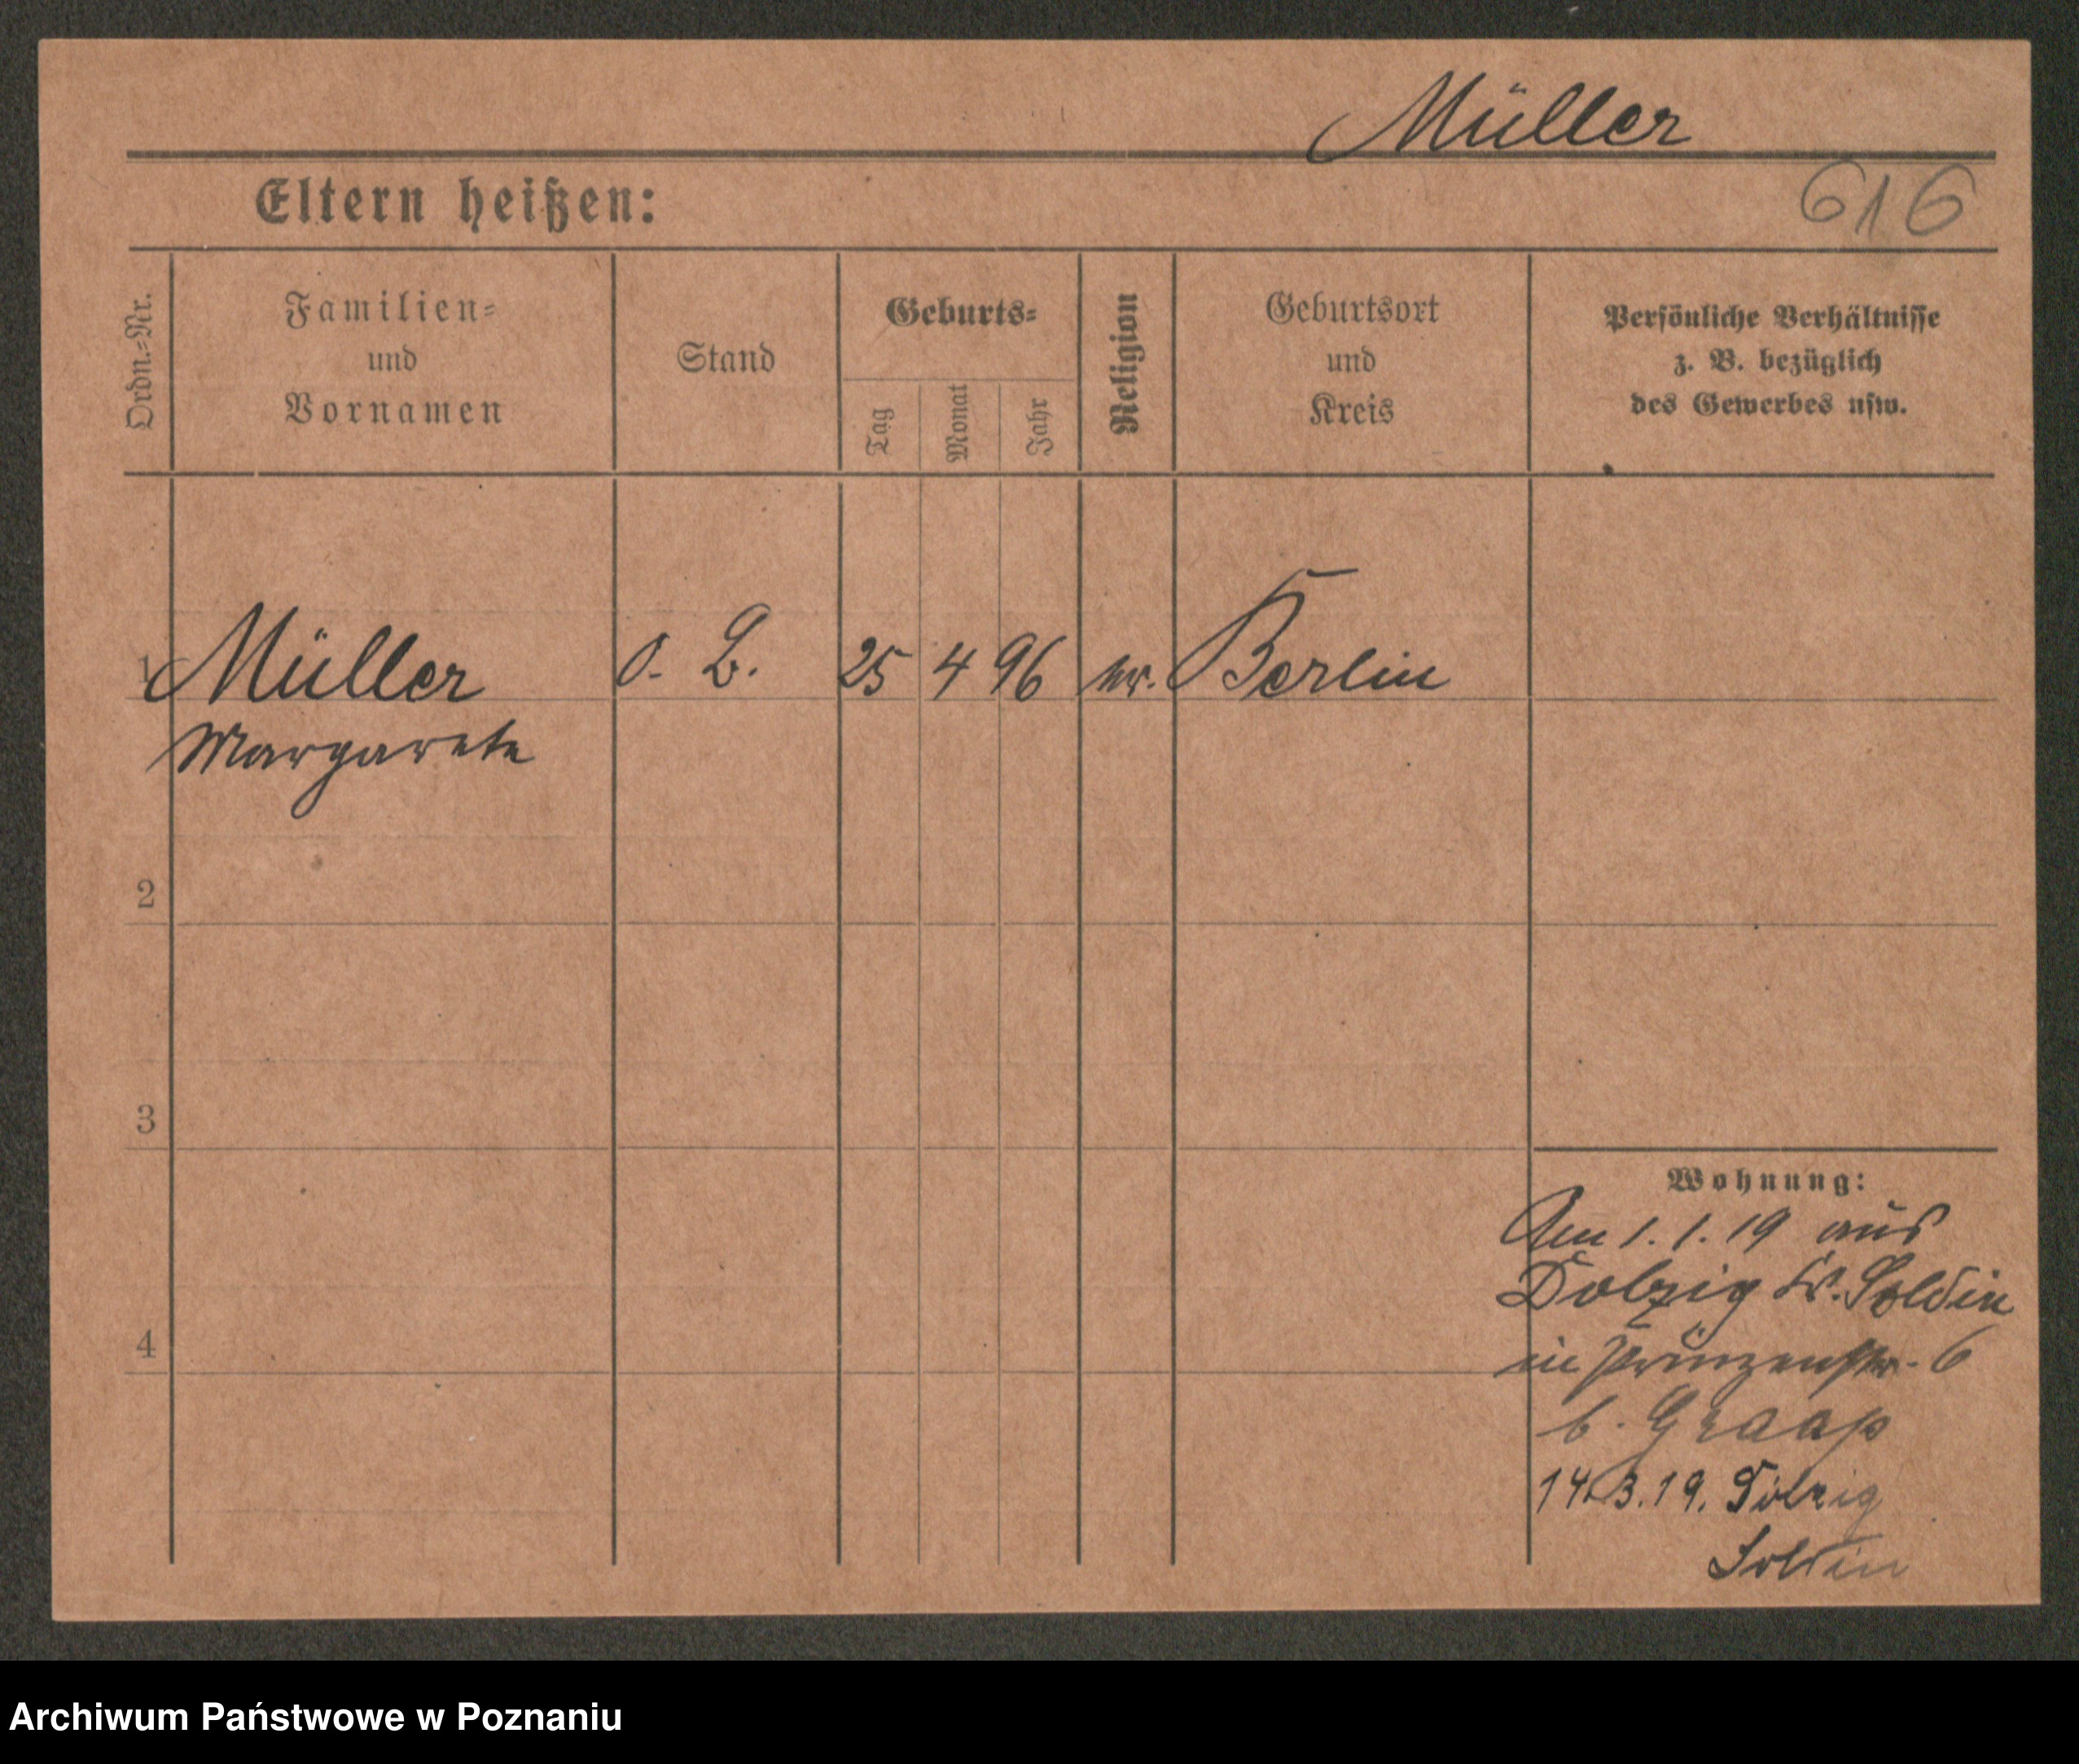 Müller
Eltern heißen:
616
Ordn.-Nr.
Familien-
und
Vornamen
Stand
Geburts-
Tag
Monat
Jahr
Religion
Geburtsort
und
Kreis
Persönliche Verhältnisse
z. B. bezüglich
des Gewerbes usw.
1 Müller o. B. 25 4 96 ev. Berlin
Margarete
2
3
4
Wohnung:
Am 1.1.19 aus
Dolzig Kr. Soldin
in Prinzenstr. 6
b. Graap
14.3.19. Dölzig
Soldin
Archiwum Państwowe w Poznaniu